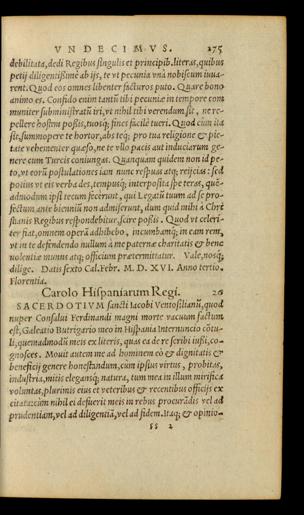 VNDECIMVS. 275
debilitata, dedi Regibus singulis et principib. literas, quibus
petij diligentissime ab ijs, te vt pecunia vnà nobiscum iuua-
rent. Quod eos omnes libenter facturos puto. Quare bono
animo es. Confido enim tantū tibi pecuniæ in tempore com
muniter subministratū iri, vt nihil tibi verendum sit, ne re-
pellere hostem possis, tuosq; fines facilè tueri. Quod cum ita
sit, summopere te hortor, abs teq; pro tua religione & pie-
tate vehementer quæso, ne te vllo pacis aut induciarum ge-
nere cum Turcis coniungas. Quanquam quidem non id pe-
to, vt eorū postulationes iam nunc respuas atq; reijcias: sed
potius vt eis verba des, tempusq; interposita spe teras, quē-
admodum ipsi tecum fecerunt, qui Legatū tuum ad se pro-
fectum ante biennium non admiserunt, dum quid mihi à Chri
stianis Regibus respondebitur, scire possis. Quod vt celeri-
ter fiat, omnem operā adhibebo, incumbamq; in eam rem,
vt in te defendendo nullum à me paternæ charitatis & bene
uolentiæ munus atq; officium prætermittatur. Vale, nosq;
dilige. Datis sexto Cal. Febr. M. D. XVI. Anno tertio.
Florentia.
Carolo Hispaniarum Regi. 26
SACERDOTIVM sancti Iacobi Ventosillani, quod
nuper Consalui Ferdinandi magni morte vacuum factum
est, Galeatio Butrigario meo in Hispania Internuncio cōtu-
li, quemadmodū meis ex literis, quas ea de re scribi iussi, co-
gnosces. Mouit autem me ad hominem eò & dignitatis &
beneficij genere honestandum, cùm ipsius virtus, probitas,
industria, mitis elegansq; natura, tum mea in illum mirificæ
voluntas, plurimis eius et veteribus & recentibus officijs ex
citata: cùm nihil ei defuerit meis in rebus procurādis vel ad
prudentiam, vel ad diligentiā, vel ad fidem. Itaq; & opinio-
ss 2